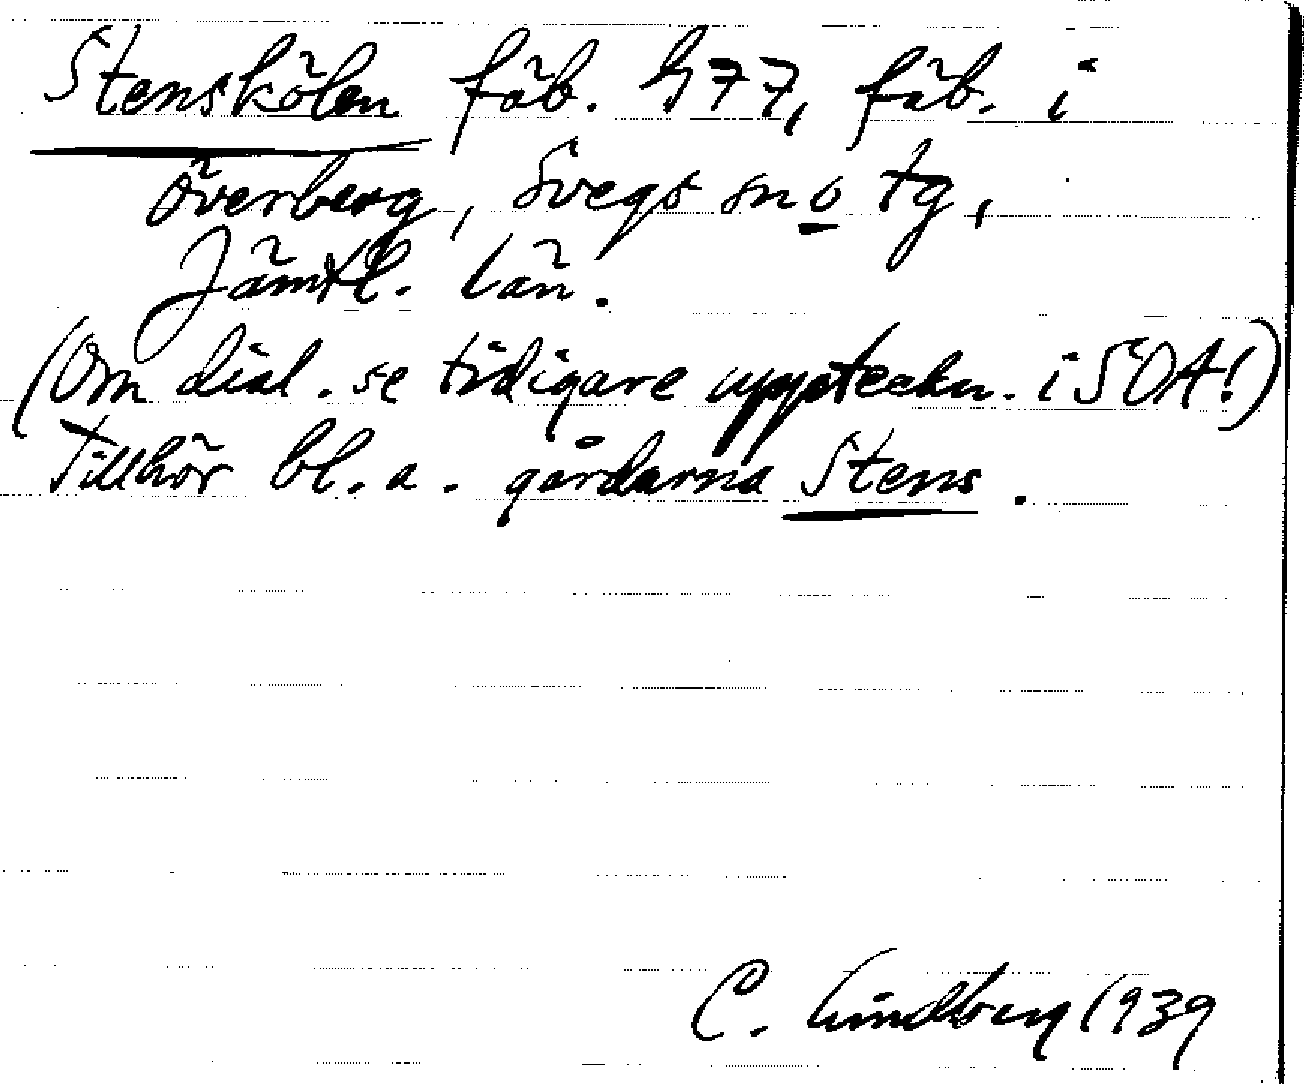 Stenskölen fäb. h77, fäb. i
Överberg, Svegs sn o tg,
Jämtl. län.
(Om dial. se tidigare uppteckn. i SOA!)
Tillhör bl. a. gårdarna Stens.
C. Lindberg 1939